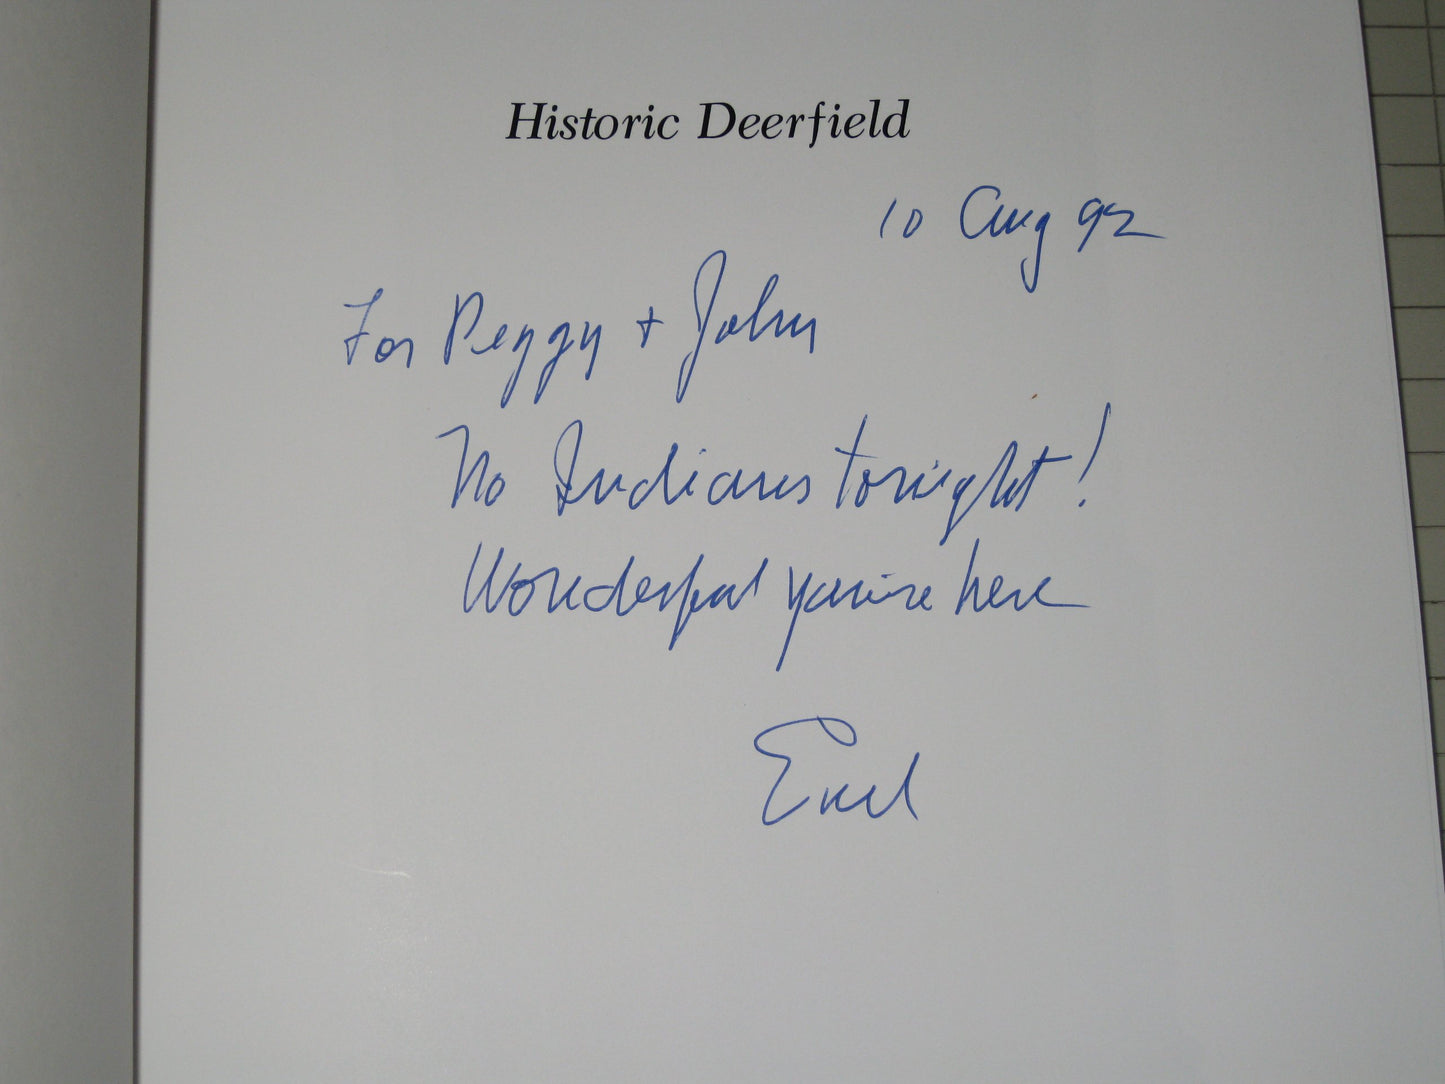 Historic Deerfield
10 Aug 92
For Peggy + John
No Indians tonight!
Wonderful you're here